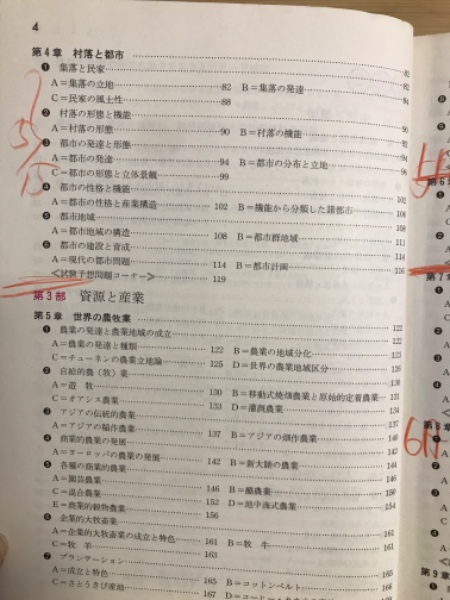 4
第4章 村落と都市 82
❶ 集落と民家 82
A=集落の立地 82 B=集落の発達 84
C=民家の風土性 88
❷ 村落の形態と機能 90
A=村落の形態 90 B=村落の機能 92
❸ 都市の発達と形態
A=都市の発達 94 B=都市の分布と立地
C=都市の形態と立体景観 99
❹ 都市の性格と機能
A=都市の性格と産業構造 102 B=機能から分類した諸都市
❺ 都市地域 108
A=都市地域の構造 108 B=都市群地域 111
❻ 都市の建設と育成 114
A=現代の都市問題 114 B=都市計画 116
<試験予想問題コーナー> 119
第3部 資源と産業
第5章 世界の農牧業 122
❶ 農業の発達と農業地域の成立 122
A=農業の発達と種類 122 B=農業の地域分化 123
C=チューネンの農業立地論 125 D=世界の農業地域区分 126
❷ 自給的農(牧)業 130
A=遊牧 130 B=移動式焼畑農業と原始的定着農業 131
C=オアシス農業 133 D=灌漑農業 134
❸ アジアの伝統的農業 137
A=アジアの稲作農業 137 B=アジアの畑作農業 140
❹ 商業的農業の発展 142
A=ヨーロッパの農業の発展 142 B=新大陸の農業 144
❺ 各種の商業的農業 146
A=園芸農業 146 B=酪農業 150
C=混合農業 152 D=地中海式農業 154
E=商業的穀物農業 156
❻ 企業的大牧畜業 161
A=企業的大牧畜業の成立と特色 161 B=牧牛 161
C=牧羊 163
❼ プランテーション
A=成立と特色 165 B=コットンベルト
C=さとうきび産地 167
第6
第7
第8章
第9章